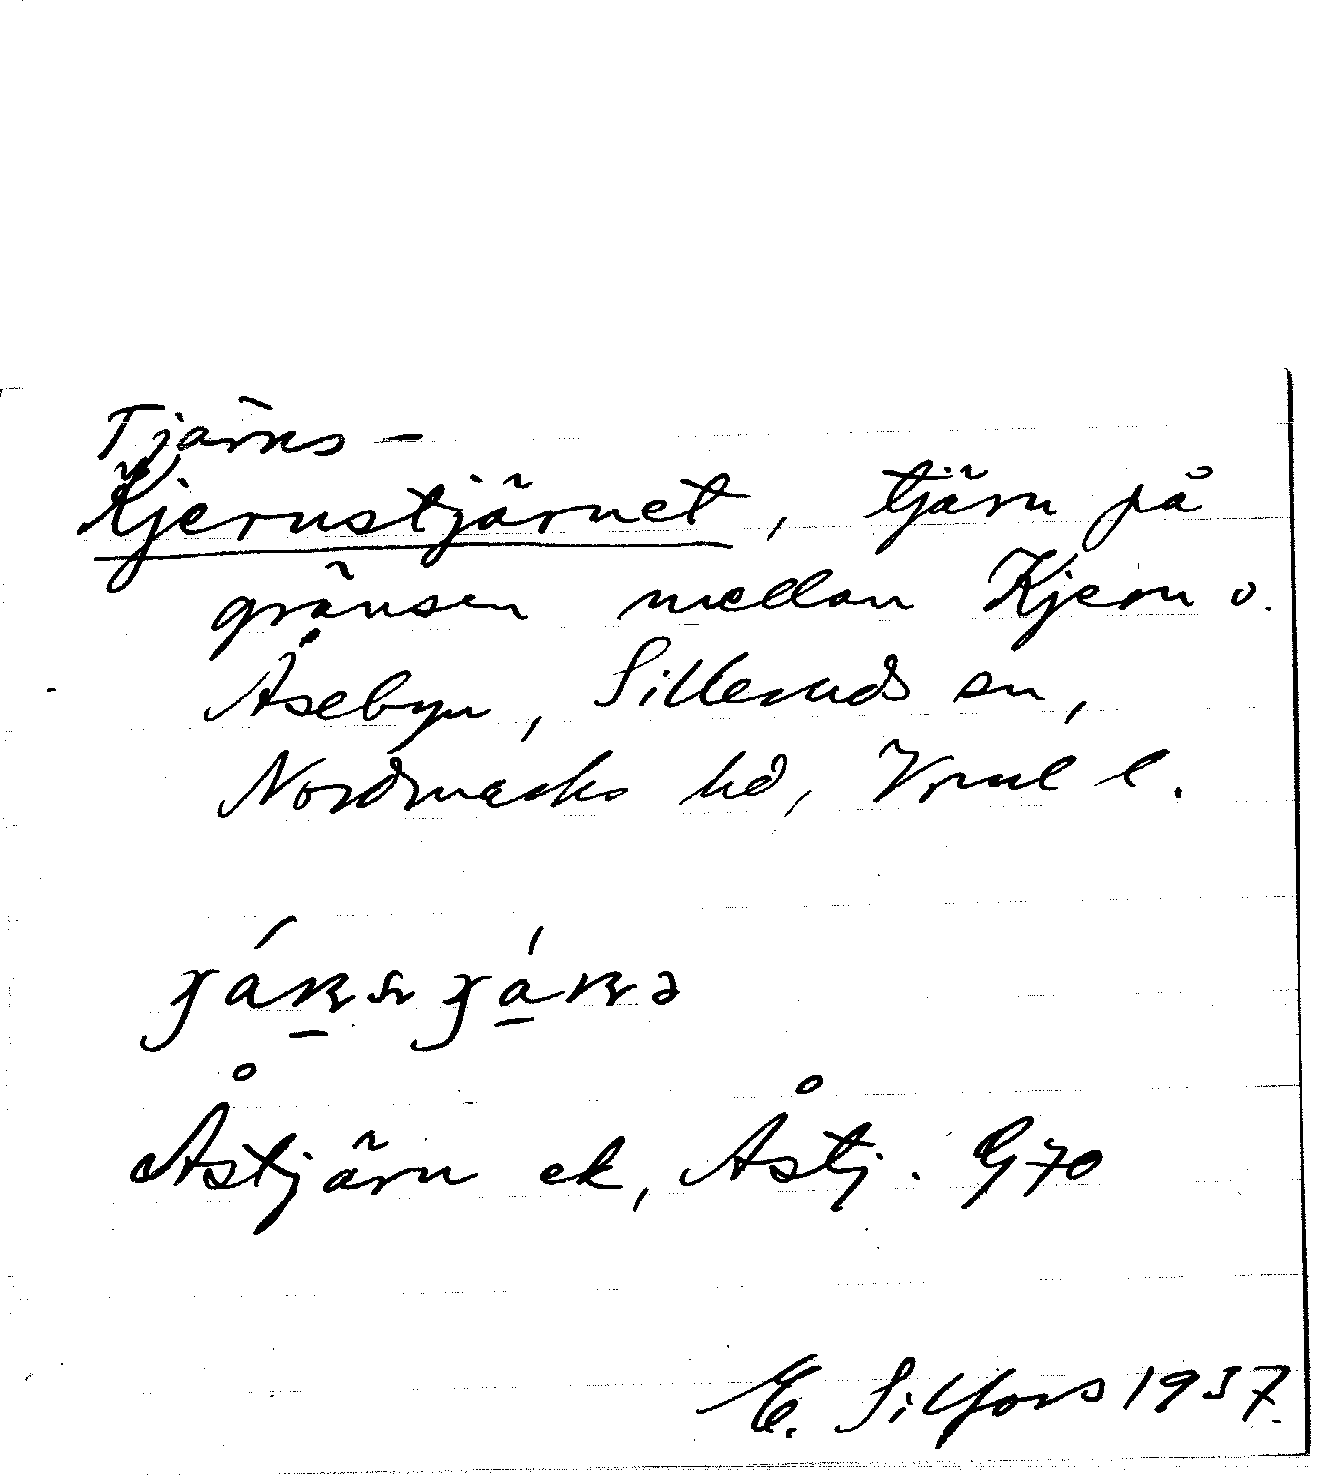 Tjärns –
Kjernstjärnet, tjärn på
gränsen mellan Kjern o.
Åsebyn, Silleruds sn,
Nordmarks hd, Vrml l.
Åstjärn ek, Åstj. G70
E. Silfors 1937